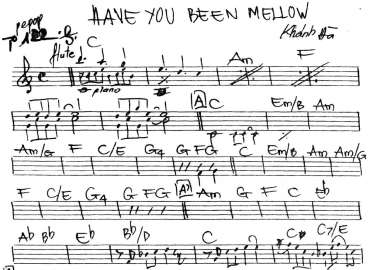 HAVE YOU BEEN MELLOW
Khánh Hà
flute C Am F
piano
A C Em/B Am
Am/G F C/E G4 G FG C Em/B Am Am/G
F C/E G4 G FG A' Am G F C Eb
Ab Bb Eb Bb/D C C7/E